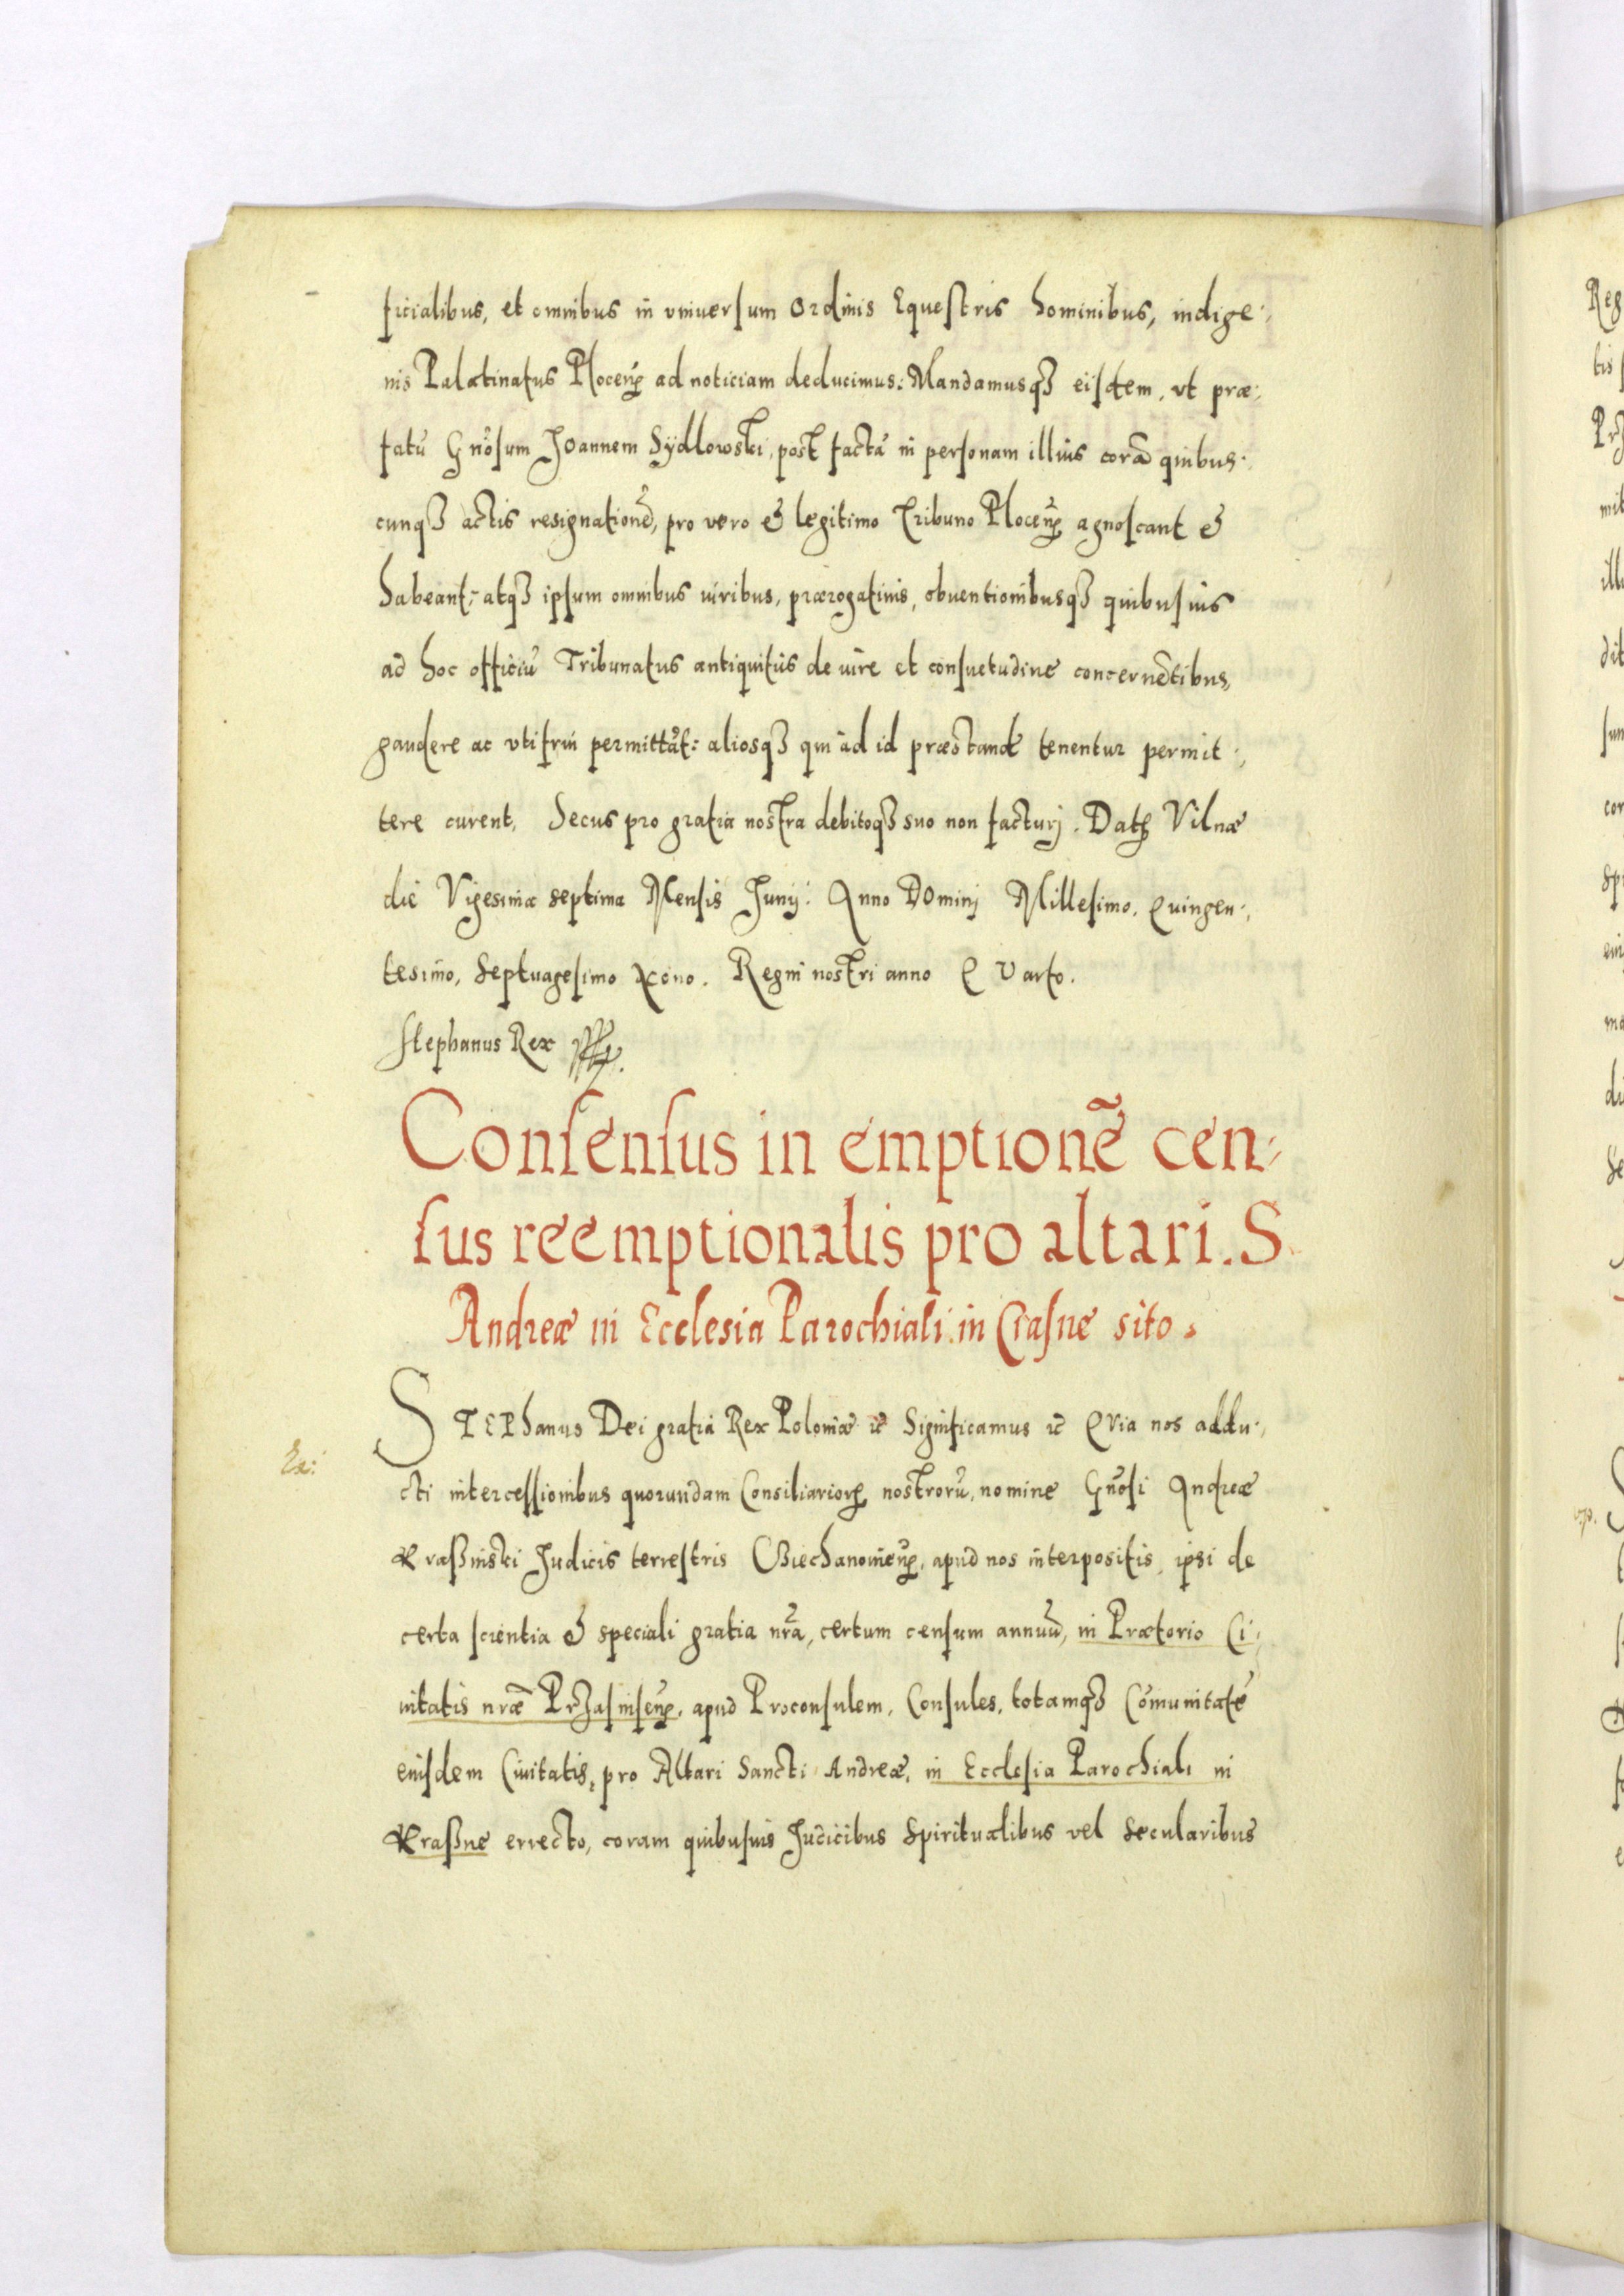 ficialibus, et omnibus in vniuersum Ordinis Equestris hominibus, indige-
nis Palatinatus Plocen̄ ad noticiam deducimus: Mandamusqꝫ eisdem, vt præ-
fatū Gn̄osum Joannem Sÿdlowski, post factā in personam illius corā quibus-
cunqꝫ actis resignationē, pro vero & legitimo Tribuno Plocen̄ agnoscant &
habeant, atqꝫ ipsum omnibus iuribus, prærogatiuis, obuentionibusqꝫ quibusuis
ad hoc officiū Tribunatus antiquitus de iure et consuetudine concernētibus,
gaudere ac vti frui permittāt: aliosqꝫ qui ad id præstandū tenentur permit-
tere curent, Secus pro gratia nostra debitoqꝫ suo non facturj. Datꝫ Vilnæ
die Vigesima septima Mensis Junij. Anno Dominj Millesimo. Quingen-
tesimo, Septuagesimo Nono. Regni nostri anno Quarto.
Stephanus Rex
Consensus in emptionē cen-
sus reemptionalis pro altari. S.
Andreæ in Ecclesia Parochiali in Crasne sito.
STEPhanus Dei gratia Rex Poloniæ ꝛc̄ Significamus ꝛc̄ Quia nos addu-
cti intercessionibus quorundam Consiliarioꝝ nostrorū, nomine Gn̄osi Andreæ
Kraßinski Judicis terrestris Ciechanouien̄, apud nos interpositis, ipsi de
certa scientia & speciali gratia nr̄a, certum censum annuū, in Prætorio Ci-
uitatis nr̄æ Przasnisen̄, apud Proconsulem, Consules, totamqꝫ Cōmunitatē
eiusdem Ciuitatis, pro Altari Sancti Andreæ, in Ecclesia Parochiali in
Kraßne errecto, coram quibusuis Judicibus Spiritualibus vel Secularibus